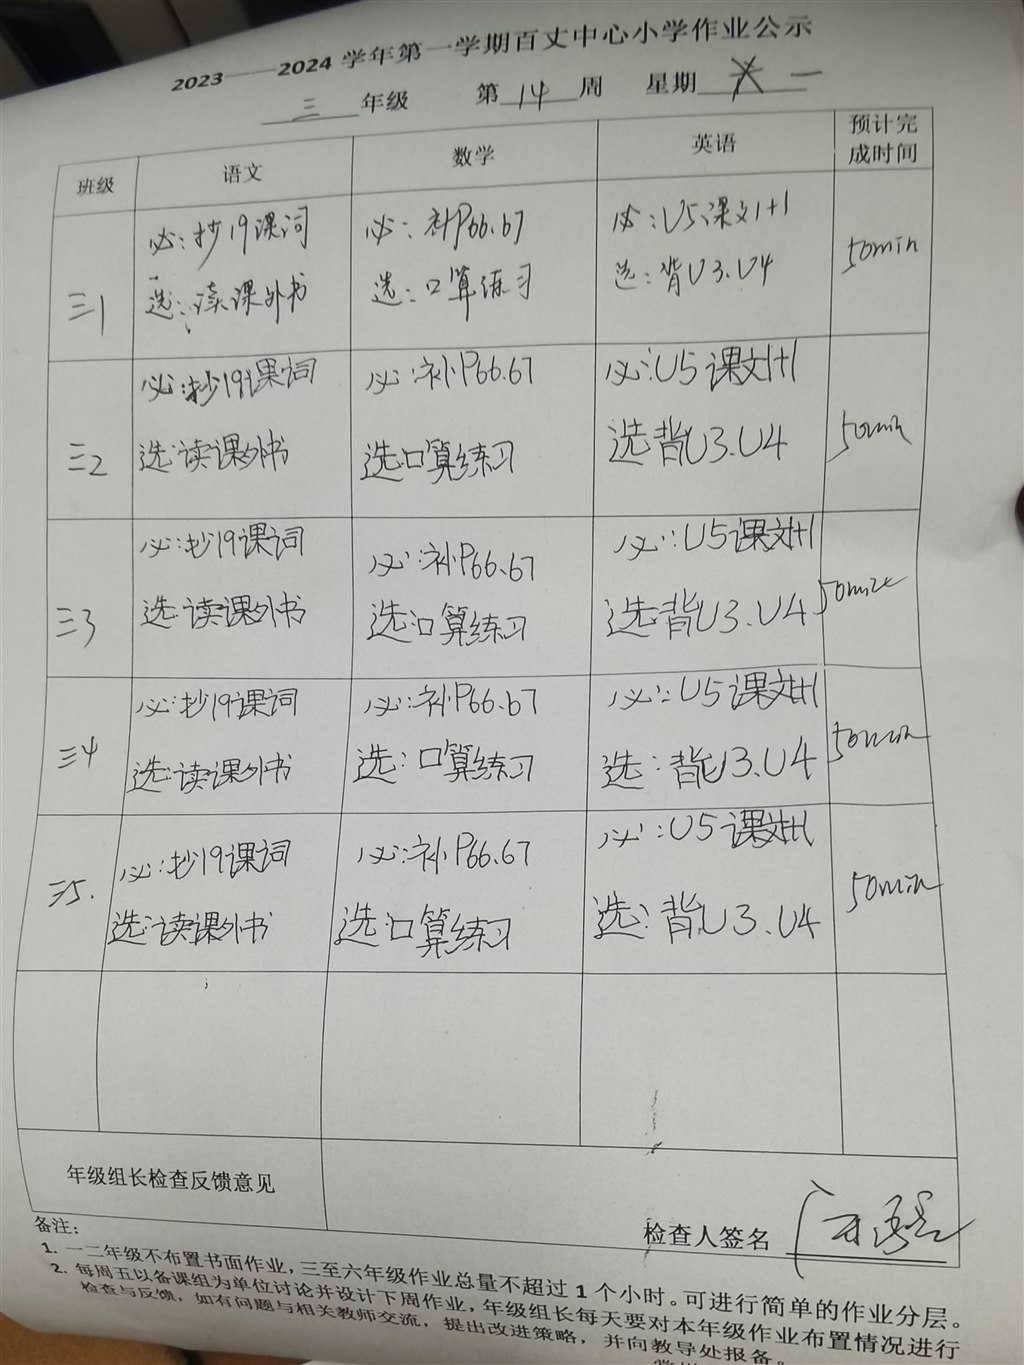 2023——2024 学年第一学期百丈中心小学作业公示
三 年级 第 14 周 星期 一
班级 语文 数学 英语 预计完成时间
三1
必:抄19课词
选:读课外书
必:补P66.67
选:口算练习
必:U5课文1+1
选:背U3.U4
50min
三2
必:抄19课词
选:读课外书
必:补P66.67
选:口算练习
必:U5课文1+1
选:背U3.U4
50min
三3
必:抄19课词
选:读课外书
必:补P66.67
选:口算练习
必:U5课文1+1
选:背U3.U4
50min
三4
必:抄19课词
选:读课外书
必:补P66.67
选:口算练习
必:U5课文1+1
选:背U3.U4
50min
三5.
必:抄19课词
选:读课外书
必:补P66.67
选:口算练习
必:U5课文1+1
选:背U3.U4
50min
年级组长检查反馈意见
检查人签名
备注:
1. 一二年级不布置书面作业,三至六年级作业总量不超过 1 个小时。可进行简单的作业分层。
2. 每周五以备课组为单位讨论并设计下周作业,年级组长每天要对本年级作业布置情况进行
检查与反馈,如有问题与相关教师交流,提出改进策略,并向教导处报备。